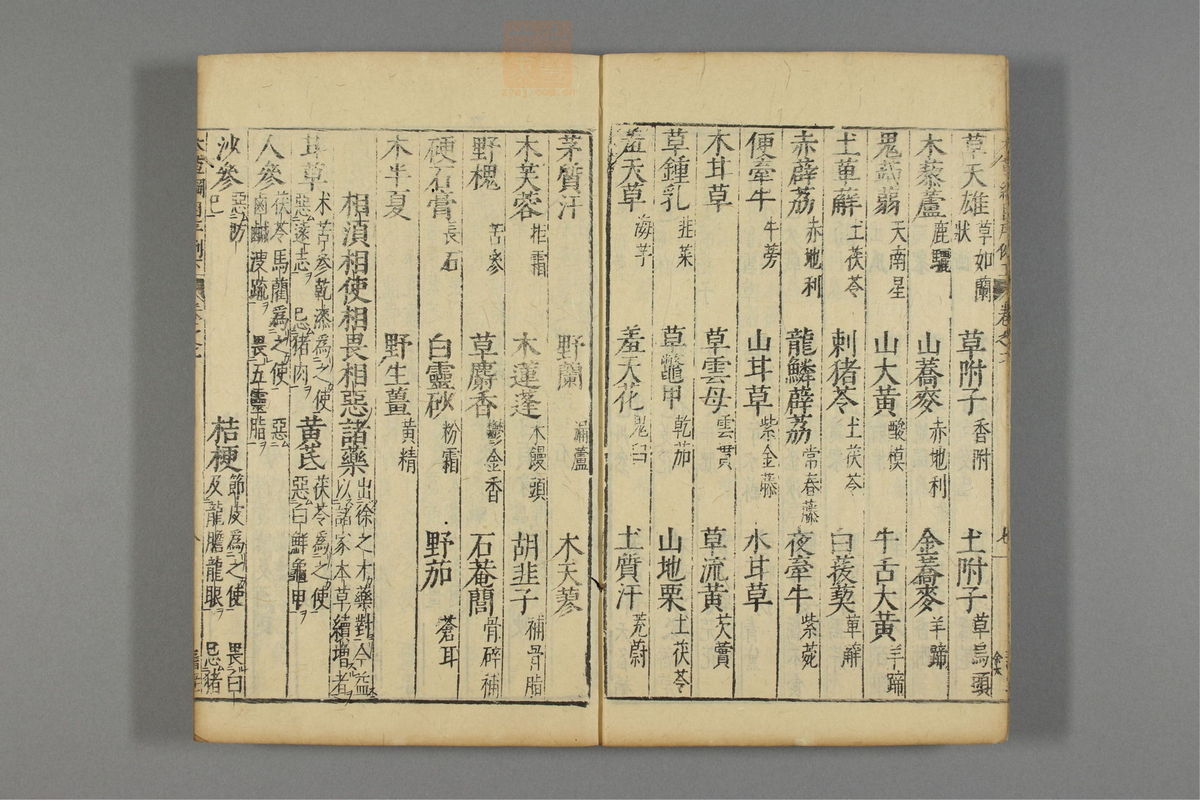 草天雄 草如蘭狀 草附子 香附 土附子 草烏頭
木藜蘆 鹿驪 山蕎麥 赤地利 金蕎麥 羊蹄
鬼蒟蒻 天南星 山大黃 酸模 牛舌大黃 羊蹄
土萆薢 土茯苓 刺猪苓 土茯苓 白菝葜 萆薢
赤薜荔 赤地利 龍鱗薜荔 常春藤 夜牽牛 紫菀
便牽牛 牛蒡 山甘草 紫金藤 水甘草
木甘草 草雲母 雲實 草流黃 芡實
草鍾乳 韭菜 草鼈甲 乾茄 山地栗 土茯苓
羞天草 海芋 羞天花 鬼臼 土質汗 茺蔚
茅質汗 野蘭 漏蘆 木天蓼
木芙蓉 拒霜 木蓮蓬 木饅頭 胡韭子 補骨脂
野槐 苦參 草麝香 鬱金香 石菴䕡 骨碎補
硬石膏 長石 白靈砂 粉霜 野茄 蒼耳
木半夏 野生薑 黃精
相須相使相畏相惡諸藥 出徐之才藥對今益以諸家本草續增者
甘草 朮苦參乾漆爲之使 惡遠志 忌猪肉 黃芪 茯苓爲之使 惡白鮮龜甲
人參 茯苓馬藺爲之使 惡鹵鹹溲疏 畏五靈脂
沙參 惡防已 桔梗 節皮爲之使 畏白及龍膽龍眼 忌猪